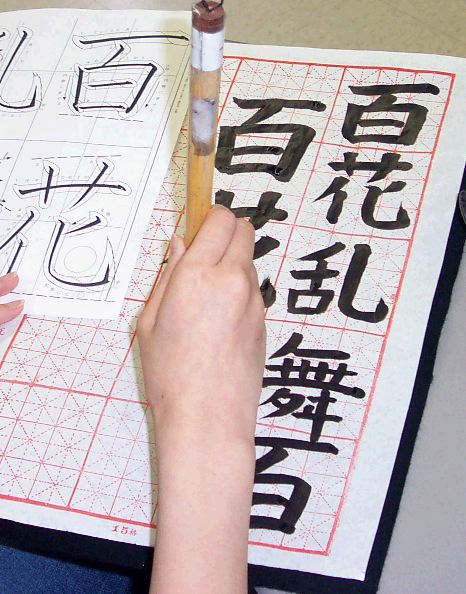 百花乱舞百
百花
百花
乱